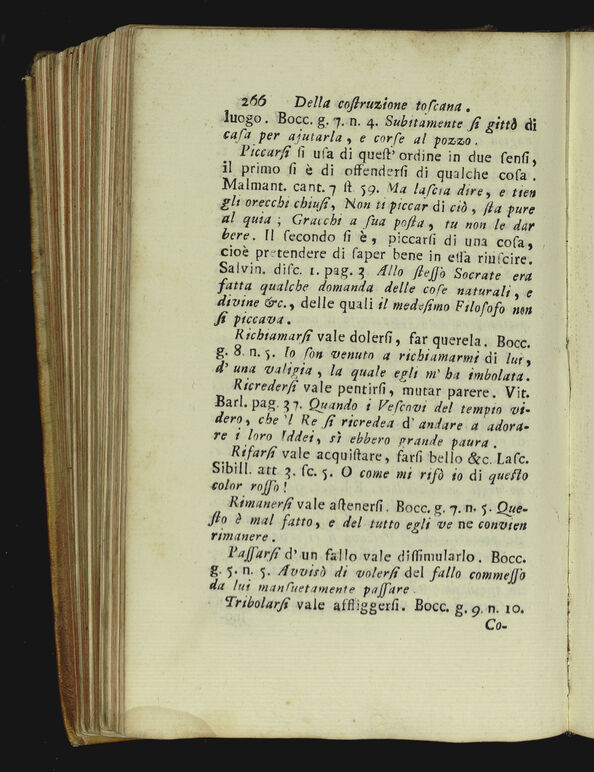 266 Della coſtruzione toſcana.
luogo. Bocc. g. 7. n. 4. Subitamente ſi gittò di
caſa per ajutarla, e corſe al pozzo.
Piccarſi ſi uſa di queſt' ordine in due ſenſi,
il primo ſi è di offenderſi di qualche coſa.
Malmant. cant. 7 ſt 59. Ma laſcia dire, e tien
gli orecchi chiuſi, Non ti piccar di ciò, ſta pure
al quia; Gracchi a ſua poſta, tu non le dar
bere. Il ſecondo ſi è, piccarſi di una coſa,
cioè pretendere di ſaper bene in eſſa riuſcire.
Salvin. diſc. 1. pag. 3 Allo ſteſſo Socrate era
fatta qualche domanda delle coſe naturali, e
divine &c., delle quali il medeſimo Filoſofo non
ſi piccava.
Richiamarſi vale dolerſi, far querela. Bocc.
g. 8. n. 5. Io ſon venuto a richiamarmi di lui,
d' una valigia, la quale egli m' ha imbolata.
Ricrederſi vale pentirſi, mutar parere. Vit.
Barl. pag. 37. Quando i Veſcovi del tempio vi-
dero, che 'l Re ſi ricredea d' andare a adora-
re i loro Iddei, sì ebbero grande paura.
Rifarſi vale acquiſtare, farſi bello &c. Laſc.
Sibill. att 3. ſc. 5. O come mi rifò io di queſto
color roſſo!
Rimanerſi vale aſtenerſi. Bocc. g. 7. n. 5. Que-
ſto è mal fatto, e del tutto egli ve ne convien
rimanere.
Paſſarſi d' un fallo vale diſſimularlo. Bocc.
g. 5. n. 5. Avvisò di volerſi del fallo commeſſo
da lui manſuetamente paſſare.
Tribolarſi vale affliggerſi. Bocc. g. 9. n. 10.
Co-